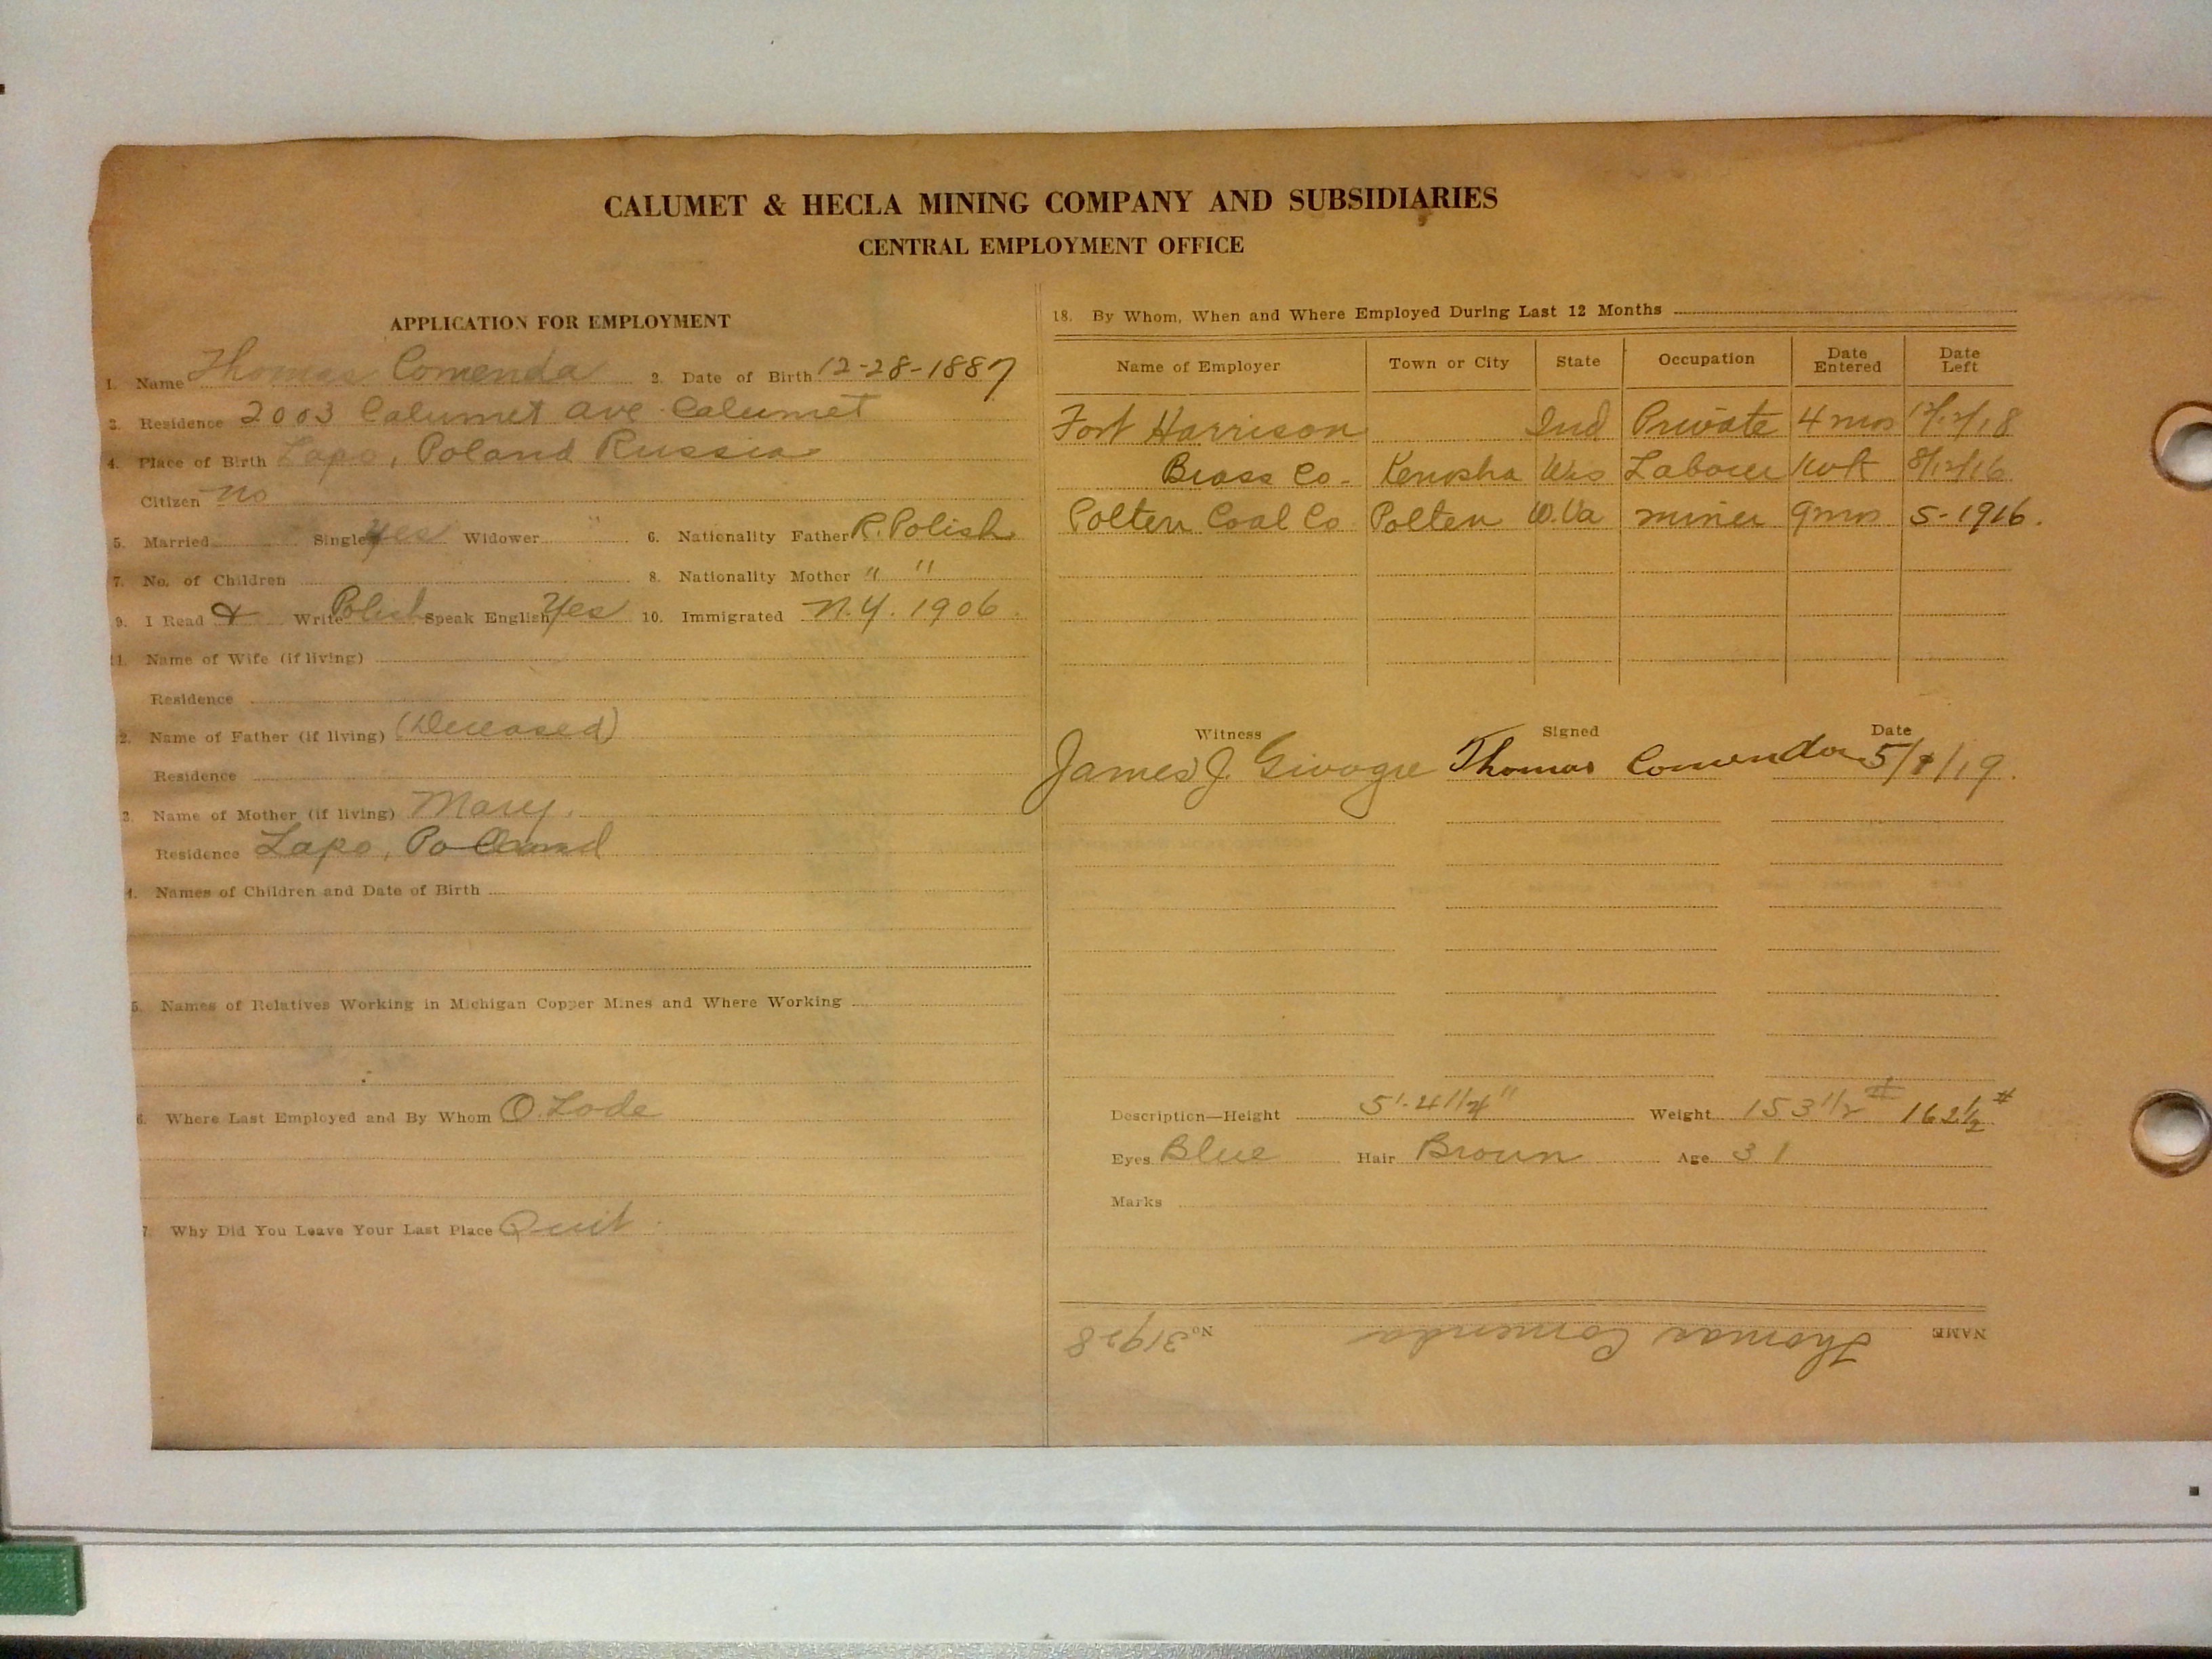 CALUMET & HECLA MINING COMPANY AND SUBSIDIARIES
CENTRAL EMPLOYMENT OFFICE
APPLICATION FOR EMPLOYMENT
1. Name Thomas Comenda 2. Date of Birth 12-28-1887
3. Residence 2003 Calumet ave Calumet
4. Place of Birth Lapo, Poland Russia
Citizen no
5. Married Single yes Widower 6. Nationality Father R. Polish
7. No. of Children 8. Nationality Mother " "
9. I Read & Write Polish Speak English Yes 10. Immigrated N.Y. 1906
11. Name of Wife (if living)
Residence
2. Name of Father (if living) (Deceased)
Residence
3. Name of Mother (if living) Mary.
Residence Lapo, Poland
4. Names of Children and Date of Birth
5. Names of Relatives Working in Michigan Copper Mines and Where Working
6. Where Last Employed and By Whom O. Lode
7. Why Did You Leave Your Last Place Quit
18. By Whom, When and Where Employed During Last 12 Months
Name of Employer Town or City State Occupation Date Entered Date Left
Fort Harrison Ind Private 4 mos 12/12/18
Brass Co. Kenosha Wis Labourer 8/12/16
Polten Coal Co Polten W.Va miner 9mos 5-1916.
Witness Signed Date
James J. Thomas Comenda 5/ /19.
Description—Height 5'-4 1/4" Weight 153 1/2 # 162 1/2 #
Eyes Blue Hair Brown Age 31
Marks
NAME Thomas Comenda No. 31928